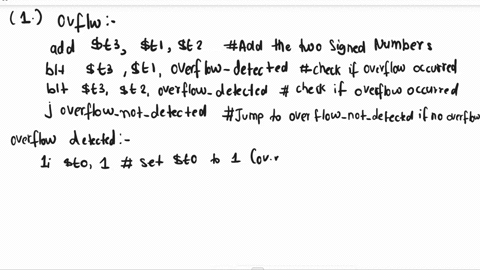 (1.) Ovflw:-
add $t3, $t1, $t2 #Add the two Signed Numbers
blt $t3, $t1, overflow-detected #check if overflow occurred
blt $t3, $t2, overflow_detected # check if overflow occurred
j overflow_not_detected #Jump to overflow_not_detected if no overflow
overflow detected:-
li $t0, 1 # set $t0 to 1 (ov.